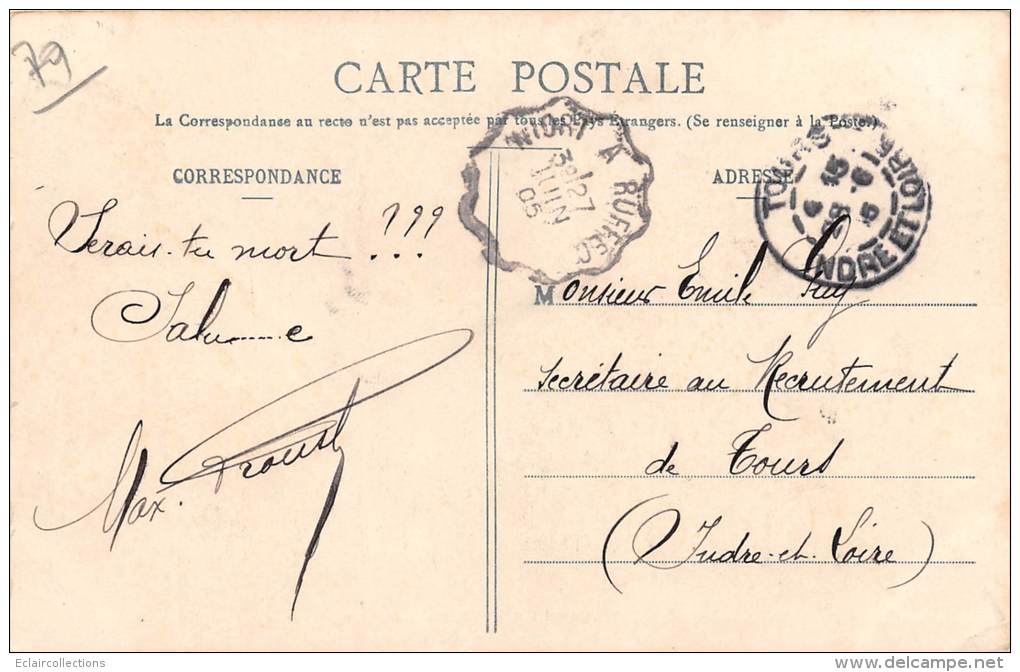 79
CARTE POSTALE
La Correspondance au recto n'est pas acceptée par tous les Pays Étrangers. (Se renseigner à la Poste.)
CORRESPONDANCE
ADRESSE
NIORT A RUFFEC
27
JUIN
05
TOURS
INDRE ET LOIRE
Serais-tu mort ???
Max. Proust
Monsieur Emile
secrétaire au Recrutement
de Tours
(Indre-et-Loire)
Eclaircollections
www.delcampe.net